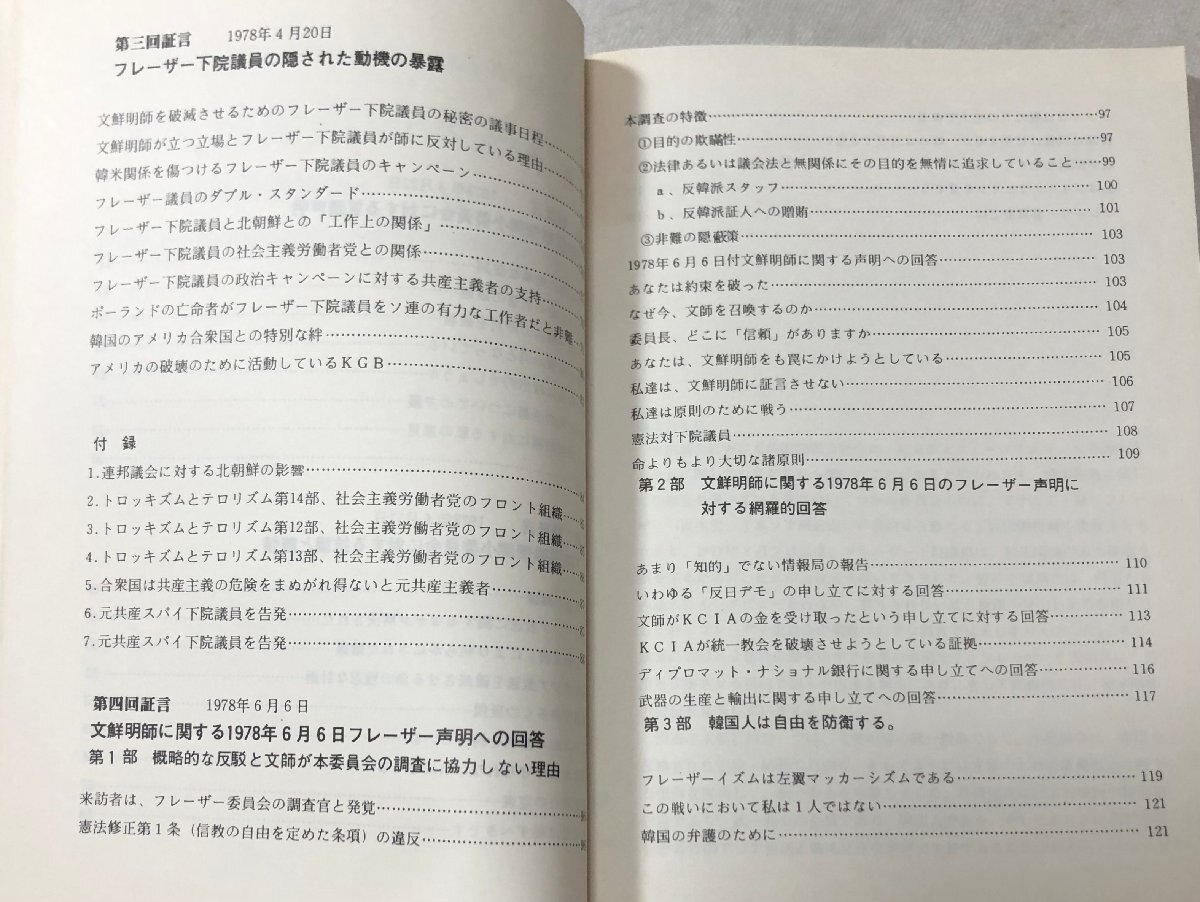 第三回証言 1978年4月20日
フレーザー下院議員の隠された動機の暴露
文鮮明師を破滅させるためのフレーザー下院議員の秘密の議事日程
文鮮明師が立つ立場とフレーザー下院議員が師に反対している理由
韓米関係を傷つけるフレーザー下院議員のキャンペーン
フレーザー議員のダブル・スタンダード
フレーザー下院議員と北朝鮮との「工作上の関係」
フレーザー下院議員の社会主義労働者党との関係
フレーザー下院議員の政治キャンペーンに対する共産主義者の支持
ポーランドの亡命者がフレーザー下院議員をソ連の有力な工作者だと非難
韓国のアメリカ合衆国との特別な絆
アメリカの破壊のために活動しているKGB
付録
1.連邦議会に対する北朝鮮の影響
2.トロッキズムとテロリズム第14部、社会主義労働者党のフロント組織
3.トロッキズムとテロリズム第12部、社会主義労働者党のフロント組織
4.トロッキズムとテロリズム第13部、社会主義労働者党のフロント組織
5.合衆国は共産主義の危険をまぬがれ得ないと元共産主義者
6.元共産スパイ下院議員を告発
7.元共産スパイ下院議員を告発
第四回証言 1978年6月6日
文鮮明師に関する1978年6月6日フレーザー声明への回答
第1部 概略的な反駁と文師が本委員会の調査に協力しない理由
来訪者は、フレーザー委員会の調査官と発覚
憲法修正第1条(信教の自由を定めた条項)の違反
本調査の特徴……97
①目的の欺瞞性……97
②法律あるいは議会法と無関係にその目的を無情に追求していること……99
a、反韓派スタッフ……100
b、反韓派証人への贈賄……101
③非難の隠蔽策……103
1978年6月6日付文鮮明師に関する声明への回答……103
あなたは約束を破った……103
なぜ今、文師を召喚するのか……104
委員長、どこに「信頼」がありますか……105
あなたは、文鮮明師をも罠にかけようとしている……105
私達は、文鮮明師に証言させない……106
私達は原則のために戦う……107
憲法対下院議員……108
命よりもより大切な諸原則……109
第2部 文鮮明師に関する1978年6月6日のフレーザー声明に
対する網羅的回答
あまり「知的」でない情報局の報告……110
いわゆる「反日デモ」の申し立てに対する回答……111
文師がKCIAの金を受け取ったという申し立てに対する回答……113
KCIAが統一教会を破壊させようとしている証拠……114
ディプロマット・ナショナル銀行に関する申し立てへの回答……116
武器の生産と輸出に関する申し立てへの回答……117
第3部 韓国人は自由を防衛する。
フレーザーイズムは左翼マッカーシズムである……119
この戦いにおいて私は1人ではない……121
韓国の弁護のために……121